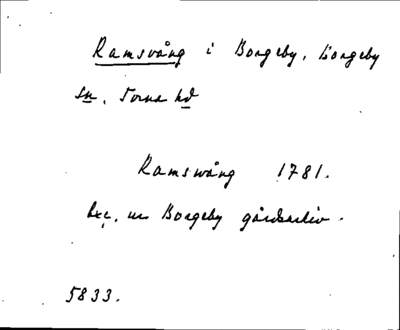 Ramsvång i Borgeby, Borgeby
sn, Torna hd
Ramswång 1781.
Exc. ur Borgeby gårdsarkiv.
5833.